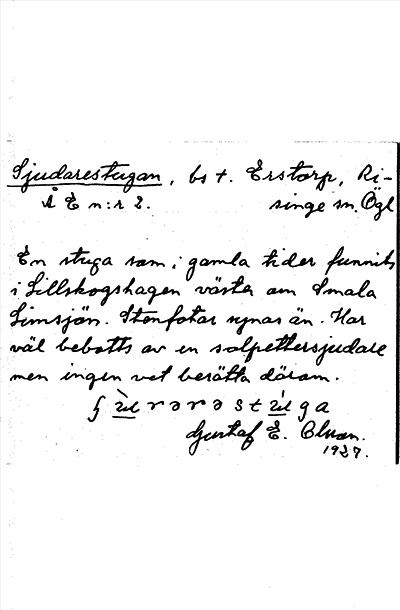 Sjudarestugan, bs t. Erstorp, Ri-
Å E n:r 2. singe sn. Ögl
En stuga som i gamla tider funnits
i Lillskogshagen väster om Smala
Limsjön. Stenfotar synas än. Har
väl bebotts av en salpettersjudare
men ingen vet berätta därom.
Gustaf E. Olsson.
1927.